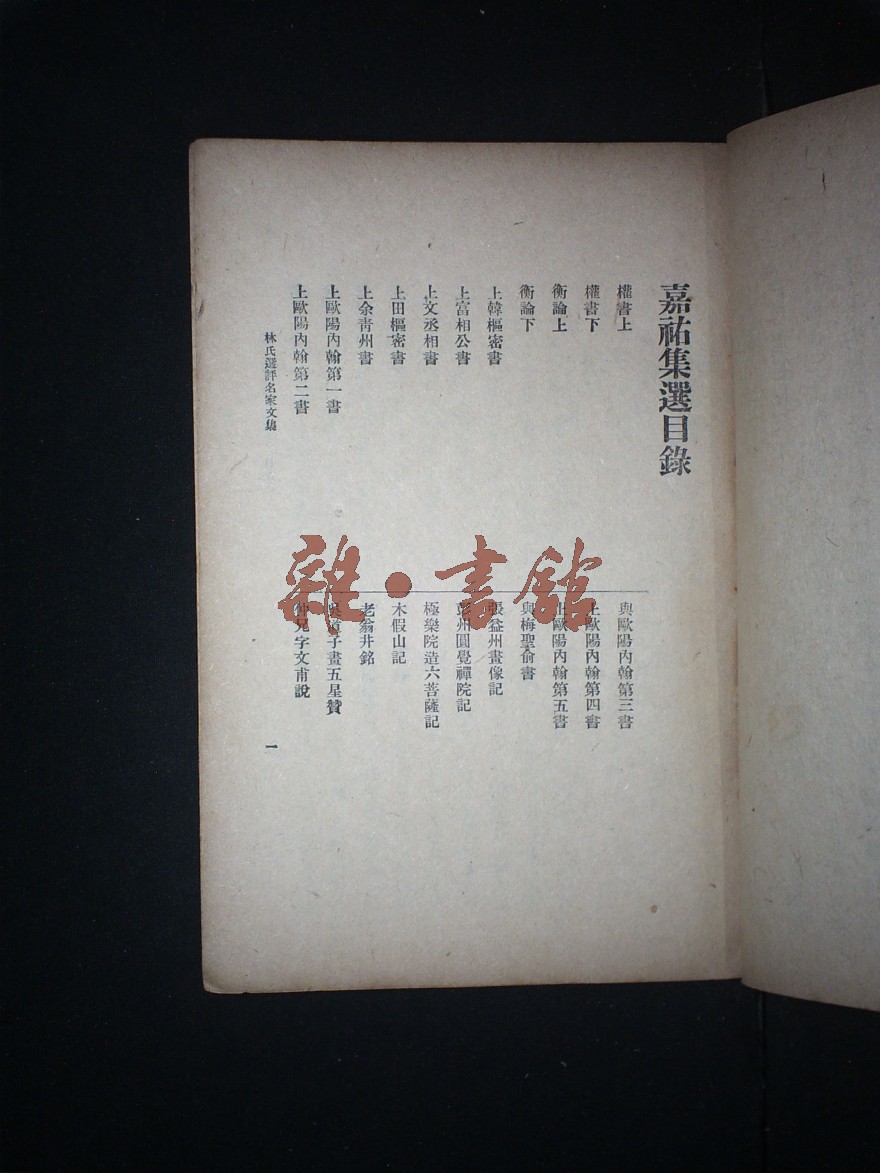 嘉祐集選目錄
權書上
權書下
衡論上
衡論下
上韓樞密書
上富相公書
上文丞相書
上田樞密書
上余靑州書
上歐陽內翰第一書
上歐陽內翰第二書
與歐陽內翰第三書
上歐陽內翰第四書
上歐陽內翰第五書
與梅聖俞書
張益州畫像記
彭州圓覺禪院記
極樂院造六菩薩記
木假山記
老翁井銘
吳道子畫五星贊
仲兄字文甫說
林氏選評名家文集
一
雜·書館